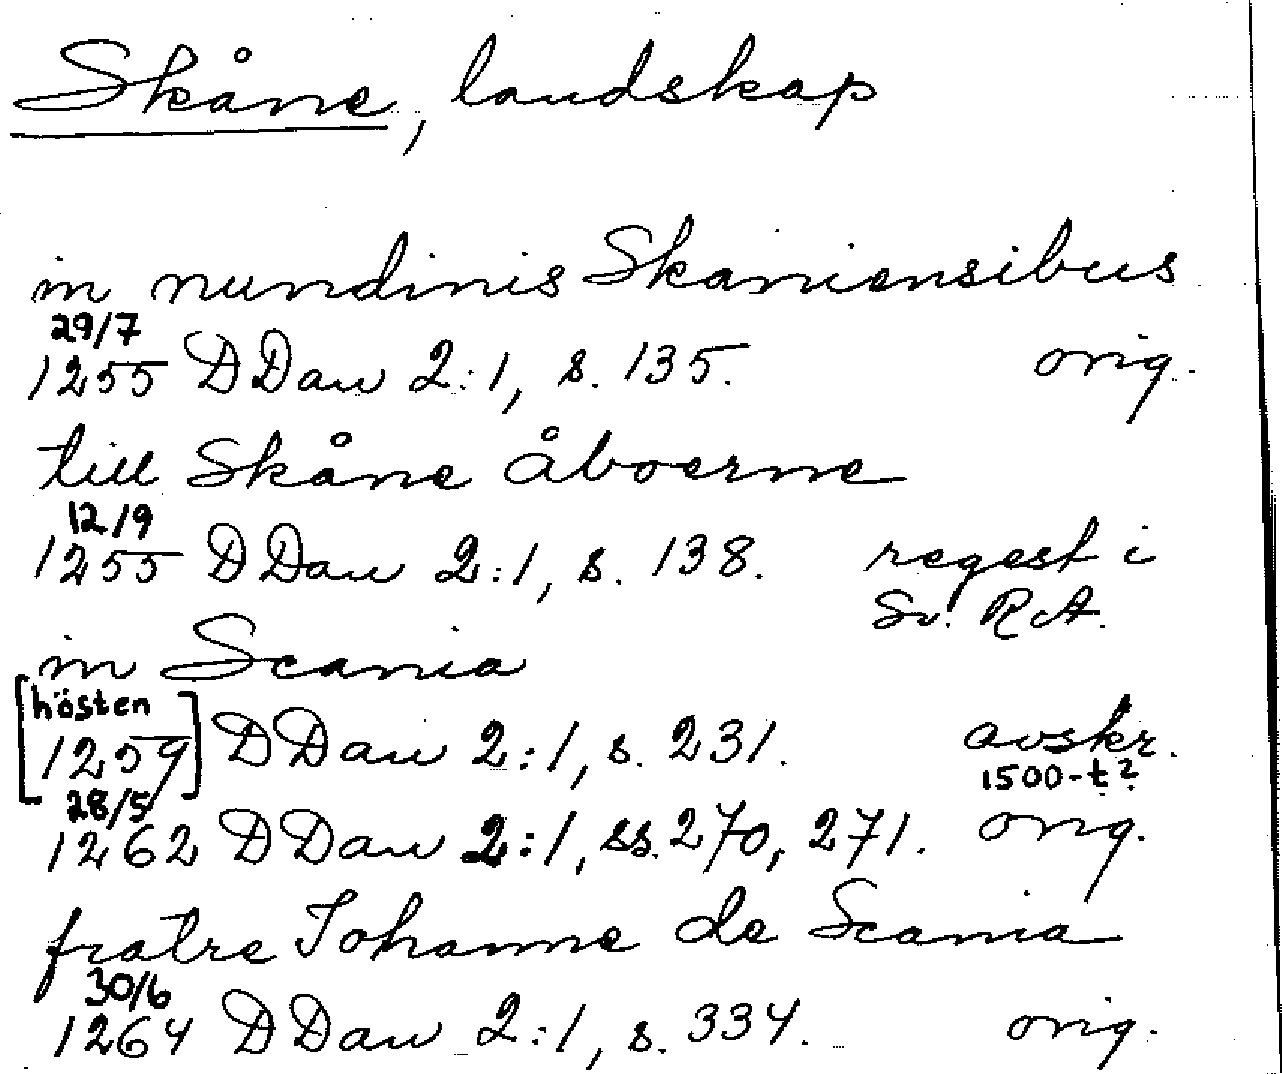 Skåne, landskap
in nundinis Skaniensibus
29/7
1255 DDan 2:1, s. 135. orig.
till Skåne åboerne
12/9
1255 DDan 2:1, s. 138. regest i
Sv. RA.
in Scania
[hösten
1259] DDan 2:1, s. 231. avskr.
1500-t?
28/5
1262 DDan 2:1, ss. 270, 271. orig.
fratre Johanne de Scania
30/6
1264 DDan 2:1, s. 334. orig.